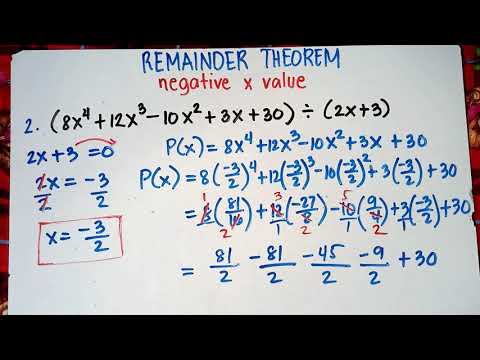 REMAINDER THEOREM
negative x value
2. (8x⁴+12x³-10x²+3x+30) ÷ (2x+3)
2x+3 =0
2x = -3
2 2
x = -3/2
P(x) = 8x⁴+12x³-10x²+3x + 30
P(x) = 8(-3/2)⁴+12(-3/2)³-10(-3/2)²+3(-3/2) + 30
= 8/1(81/16)+12/1(-27/8)-10/1(9/4)+3/1(-3/2)+30
= 81/2 -81/2 -45/2 -9/2 +30